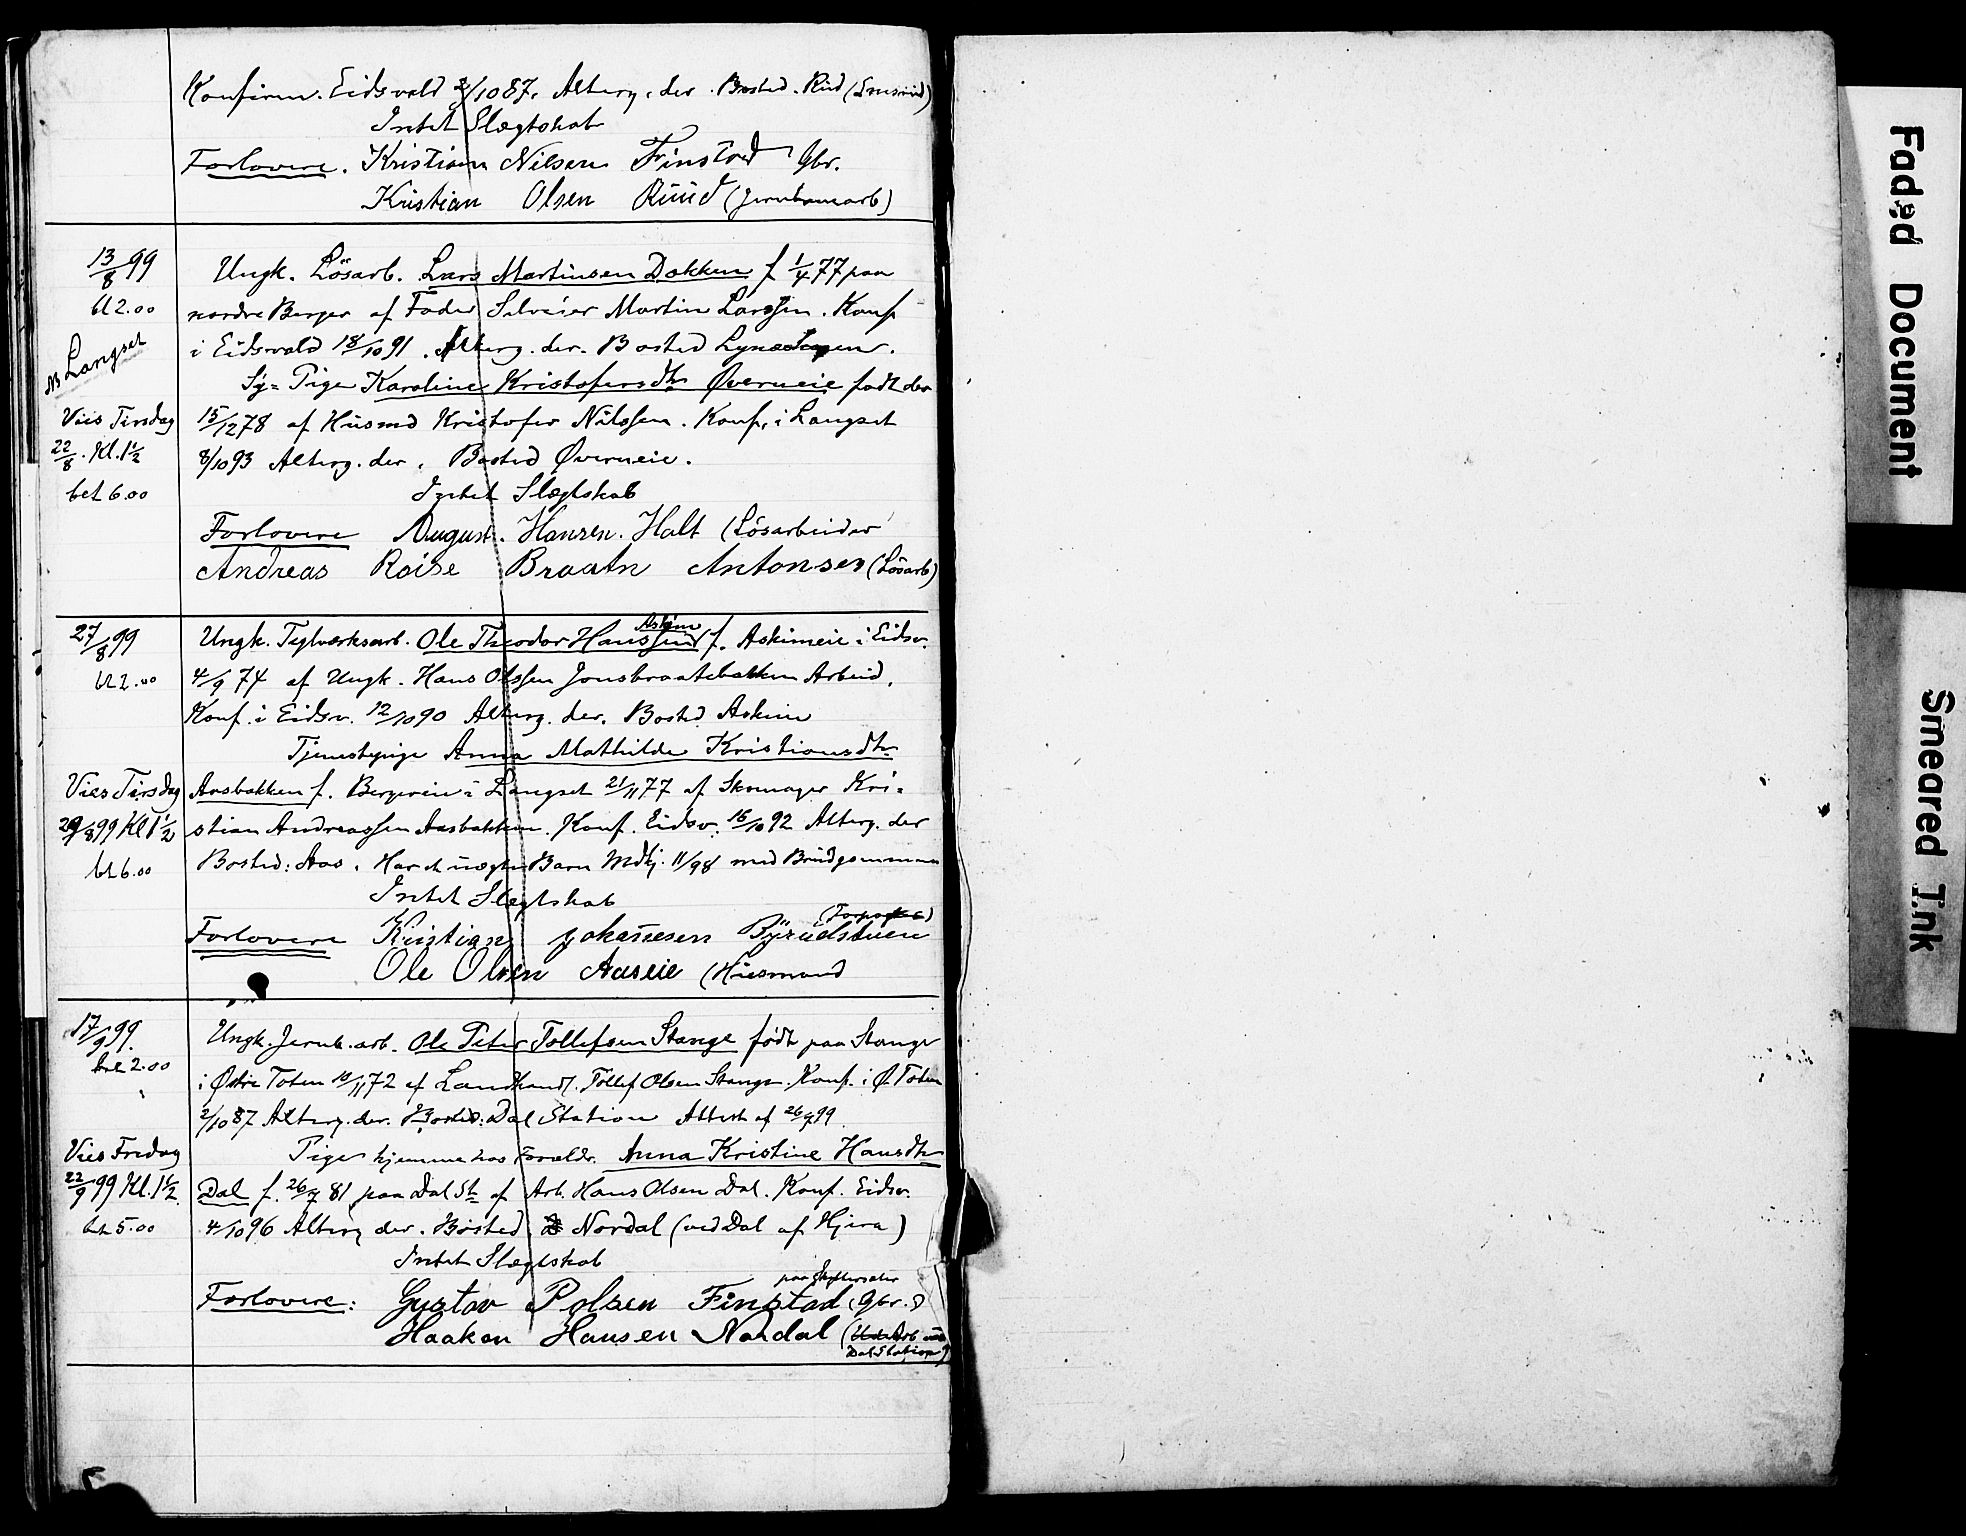 Konfirm. Eidsvold 2/10 87. Alterg. der. Bosted. Rud
Intet Slægtskab
Forlovere. Kristian Nilsen Finstad Gbr.
Kristian Olsen Ruud (Jernbanearb)
13/8 99 Ungk. Lösarb. Lars Martinsen Dokken f 1/4 77 paa
bt 2.00 nordre Berger af Fader Selveier Martin Larssen. Konf
NB Langset i Eidsvold 18/10 91. Alterg. der. Bosted
Sy= Pige Karoline Kristofersdtr Øverneie født der
Vies Tirsdag 15/12 78 af Husmd Kristofer Nilssen. Konf. i Langset
22/8. Kl. 1 1/2 8/10 93 Alterg. der. Bosted Øverneie.
bet 6.00 Intet Slægtskab
Forlovere August. Hansen. Holt (Lösarbeider
Andreas Roise Braatn Antonsen (Lösarb)
27/8 99 Ungk. Teglverksarb. Ole Theodor Hanssen Askim f. Askimeie i Eidsv.
bt 2.00 4/9 74 af Ungk. Hans Olssen Jonsbraatebakken Arbeid.
Konf. i Eidsv. 12/10 90 Alterg. der. Bosted Askim
Tjenestepige Anna Mathilde Kristiansdtr
Vies Tirsdag Aasbakken f. Bergereie i Langset 21/11 77 af Skomager Kri=
29/8 99 Kl 1 1/2 stian Andreassen Aasbakken. Konf. Eidsv. 16/10 92 Alterg. der
bt 6.00 Bosted: Aas. Har et uægte Barn Mdkj. 11/98 med Brudgommen
Intet Slægtskab
(Forpagter)
Forlovere Kristian Johanesen Byrudstuen
Ole Olsen Aaseie (Husmand
17/9 99. Ungk. Jernb. arb. Ole Peter Tollefsen Stange født paa Stange
bet 2.00 i Østre Toten 10/11 72 af Landhandl. Tollef Olsen Stange. Konf. i Ø. Toten
2/10 87 Alterg. der. Bosted: Dal Station Attest af 26/7 99.
Vies Fredag Pige hjemme hos Forældr. Anna Kristine Hansdtr
22/9 99 Kl. 1 1/2 Dal f. 26/7 81 paa Dal St. af Arb. Hans Olsen Dal. Konf. Eidsv.
bt 5.00 4/10 96 Alterg der. Bosted Nordal (ved Dal af Hjera)
Intet Slægtskab
Forlovere: Gustav Polsen Finstad (Gbr.)
Haakon Hansen Nordal (Arb ved
Dal Station)
Faded Document
Smeared Ink